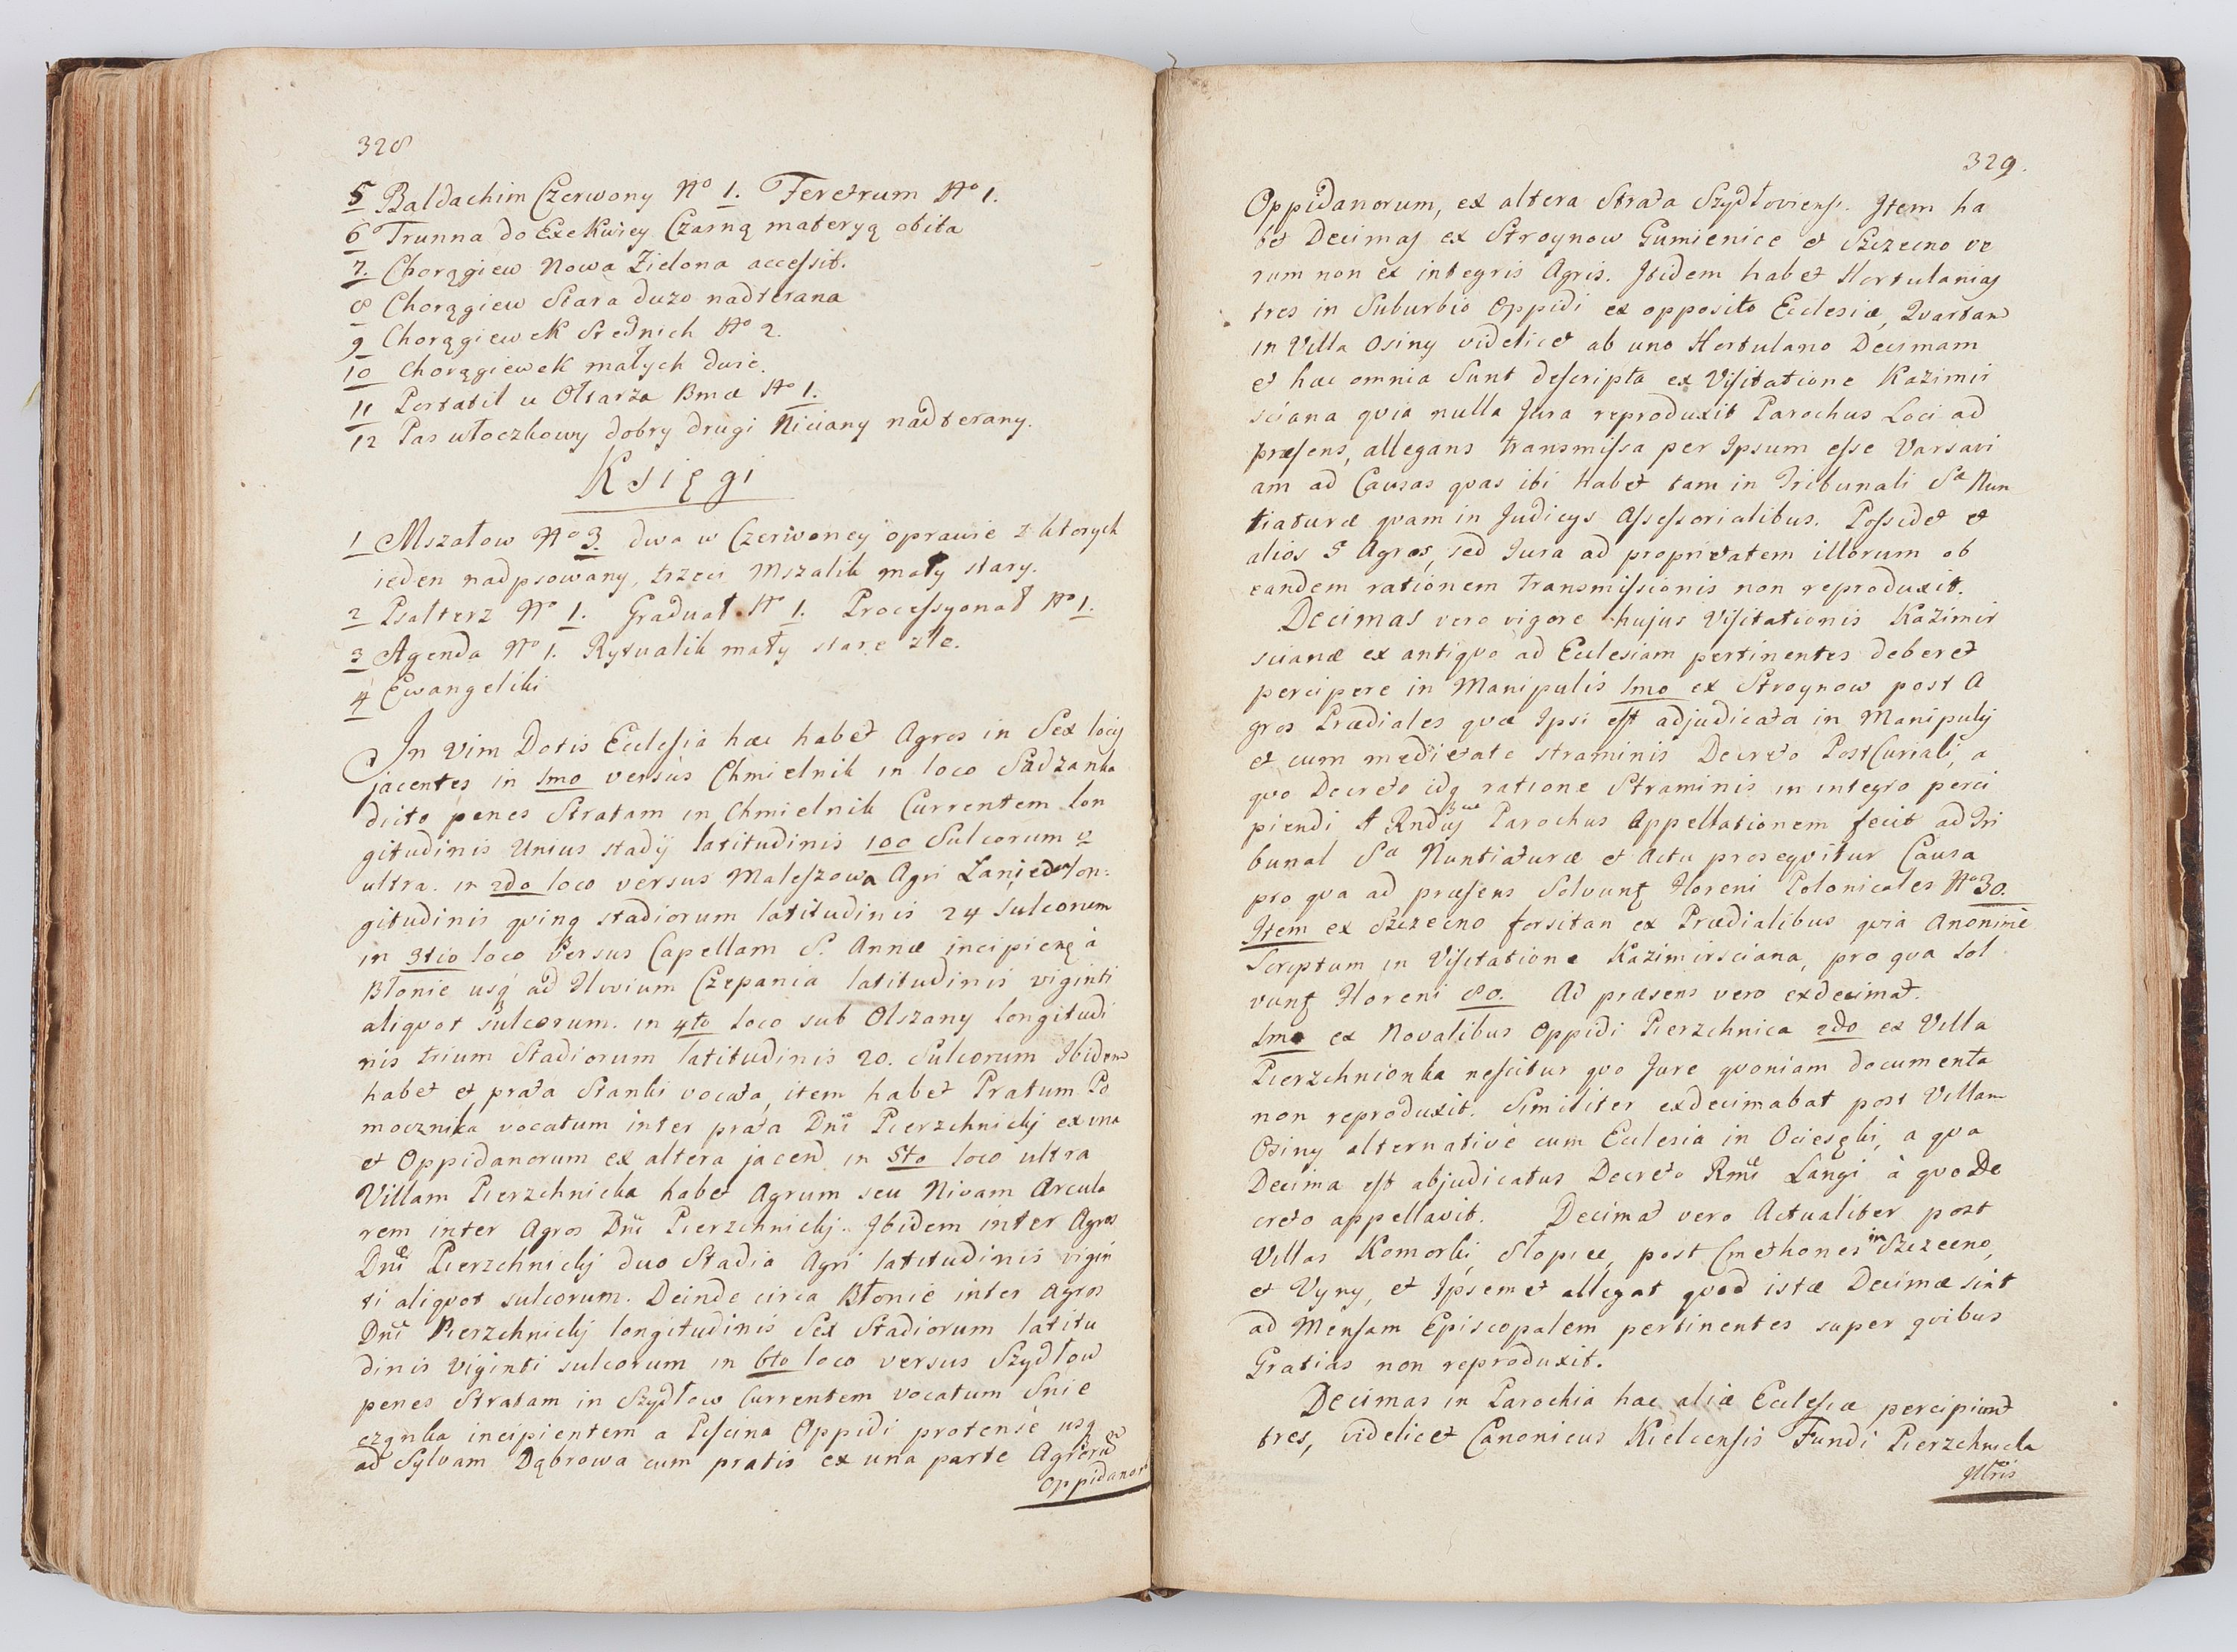 328
5 Baldachim Czerwony No 1. Feretrum No 1.
6 Trunna do Exekwiey Czarną materyą obita
7. Chorągiew Nowa Zielona accessit.
8 Chorągiew Stara duzo nadterana
9 Chorągiewek Srednich No 2.
10 Chorągiewek małych dwie.
11 Portatil u Ołtarza Bmæ No 1.
12 Pas włoczkowy dobry drugi Niciany nadterany.
Księgi
1 Mszałow No 3. dwa w Czerwoney oprawie z ktorych
ieden nadpsowany, trzeci Mszalik mały stary.
2 Psalterz No 1. Graduał No 1. Processyonał No 1.
3 Agenda No 1. Rytualik mały stare złe.
4 Ewangeliki
In Vim Dotis Ecclesia hæc habet Agros in Sex locis
jacentes in 1mo versus Chmielnik in loco Sadzanka
dicto penes Stratam in Chmielnik Currentem lon
gitudinis Unius stadij latitudinis 100 Sulcorum et
ultra. in 2do loco versus Maleszowa Agri Łanied lon:
gitudinis qvinq stadiorum latitudinis 24 sulcorum
in 3tio loco Versus Capellam S. Annæ incipien à
Błonie usq ad Fluvium Czepania latitudinis viginti
aliqvot sulcorum. in 4to loco sub Olszany longitudi
nis trium Stadiorum latitudinis 20. Sulcorum Ibidem
habet et prata Stanki vocata, item habet Pratum Po
mocznika vocatum inter prata Dni Pierzchnicky ex una
et Oppidanorum ex altera jacend in 5to loco ultra
Villam Pierzchnicka habet Agrum seu Nivam Arcula
rem inter Agros Dni Pierzchnicky. Ibidem inter Agros
Dni Pierzchnicky duo Stadia Agri latitudinis vigin
ti aliqvot sulcorum. Deinde circa Błonie inter Agros
Dni Pierzchnicky longitudinis Sex Stadiorum latitu
dinis Viginti sulcorum in 6to loco versus Szydłow
penes Stratam in Szydłow Currentem vocatum Snie
czynka incipientem a Piscina Oppidi protensè usq
ad Sylvam Dąbrowa cum pratis ex una parte Agrorum
Oppidanor
329.
Oppidanorum, ex altera Strata Szydłoviensi. Item ha
bet Decimas ex Stroynow Gumienice et Szczecno ve
rum non ex integris Agris. Ibidem habet Hortulanias
tres in Suburbio Oppidi ex opposito Ecclesiæ, Quartam
in Villa Osiny videlicet ab uno Hortulano Decimam
et hæc omnia Sunt descripta ex Visitatione Kazimir
sciana qvia nulla Jura reproduxit Parochus Loci ad
præsens, allegans transmissa per Ipsum esse Varsavi
am ad Causas qvas ibi Habet tam in Tribunali Sæ Nun
tiaturæ qvam in Judicys Assessorialibus. Possidet et
alios 5 Agros, sed Jura ad proprietatem illorum ob
eandem rationem transmissionis non reproduxit.
Decimas vero vigore hujus Visitationis Kazimir
scianæ ex antiqvo ad Ecclesiam pertinentes deberet
percipere in Manipulis 1mo ex Stroynow post A
gros Prædiales qvæ Ipsi est adjudicata in Manipulis
et cum medietate straminis Decreto PostCuriali, a
qvo Decreto idq ratione Straminis in integro perci
piendi A Rndus Parochus Appellationem fecit ad Tri
bunal Sæ Nuntiaturæ et Actu proseqvitur Causa
pro qva ad præsens Solvunt Floreni Polonicales No 30.
Item ex Szczecno forsitan ex Prædialibus qvia Anonimè
Scriptum in Visitatione Kazimirsciana, pro qva sol
vunt Floreni 80. Ad præsens vero exdecimat.
1mo ex Novalibus Oppidi Pierzchnica 2do ex Villa
Pierzchnionka nescitur qvo Jure qvoniam documenta
non reproduxit. Similiter exdecimabat post Villam
Osiny alternativè cum Ecclesia in Ociesęki, a qva
Decima est abjudicatus Decreto Rmi Langi à qvo De
creto appellavit. Decimat vero Actualiter post
Villas Komorki, Słopiec, post Cmethones in Szczecno,
et Vyny, et Ipsemet allegat qvod istæ Decimæ sint
ad Mensam Episcopalem pertinentes super qvibus
Gratias non reproduxit.
Decimas in Parochia hac aliæ Ecclesiæ percipiunt
tres, videlicet Canonicus Kielcensis Fundi Pierzchnicka